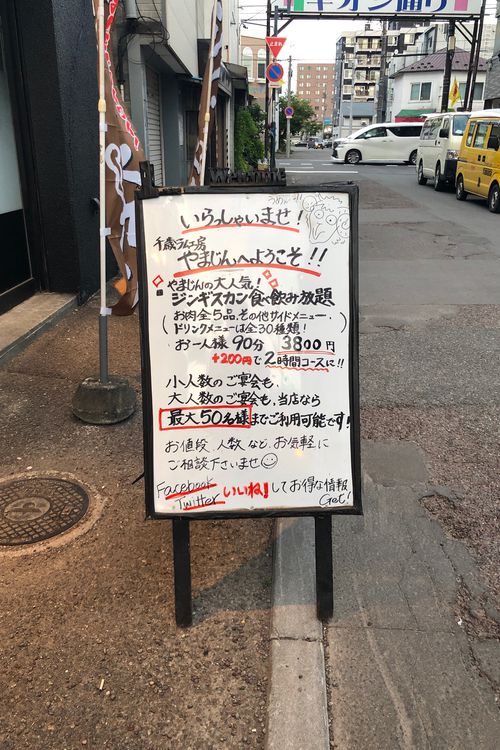 ギオン通り
止まれ
うめぇ〜!!
いらっしゃいませ!
千歳ラム工房
やまじんへようこそ!!
やまじんの大人気!
ジンギスカン食べ飲み放題
(お肉全5品、その他サイドメニュー、
ドリンクメニューは全30種類!)
お一人様 90分 3800円
+200円で2時間コースに!!
小人数のご宴会も、
大人数のご宴会も、当店なら
最大50名様までご利用可能です!
お値段、人数など、お気軽に
ご相談下さいませ
Facebook
Twitter いいね!してお得な情報
Get!